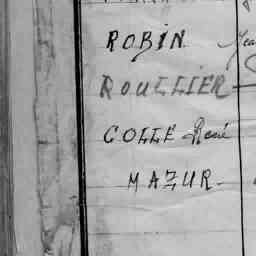 ROBIN Jea
ROULLIER
COLLE René
MAZUR